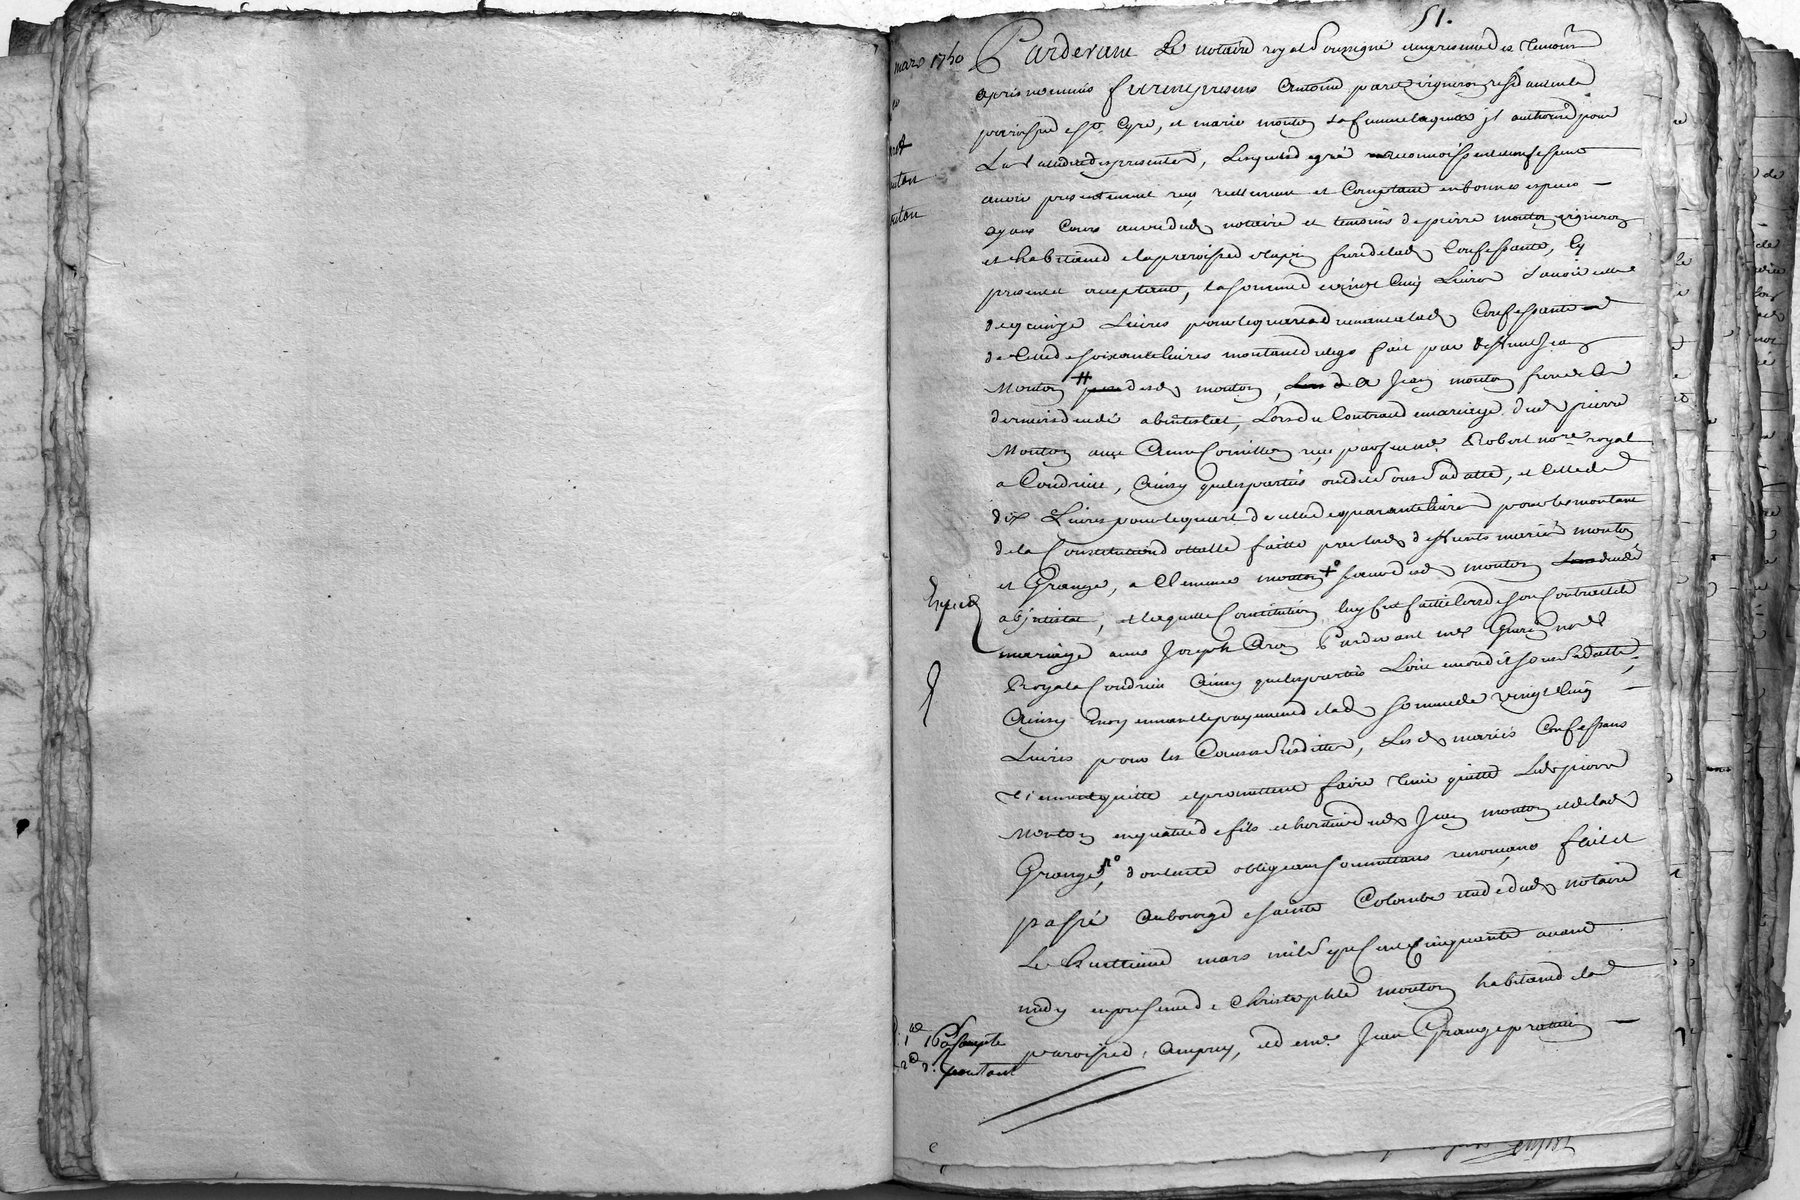 51.
mars 1750
Pardevant Le notaire royal soussigné et en presence des temoins
apres nommés furent presens Antoine paret vigneron residant en la
paroisse de st. Cyre, et marie mouton sa femme laquelle jl authorise pour
La validité des presentes, Lesquels de gré reconnoissent et confessent
avoir presentement reçu reellement et Comptant en bonnes especes
ayans Cours au vu dud. notaire et temoins de pierre mouton vigneron
et habitand de la paroisse frere de lad. Confessante, Cy
present et acceptant, la somme de vingt Cinq Livres Savoir celle
de quinze Livres pour le quart advenant a lad. Confessante
de Celle de soixante livres montant du legs fait par deffunt Jean
Mouton pere desd. mouton, a Jean mouton frere
dernier decedé abintestat, Lors du Contract de mariage dud. pierre
Mouton avec Anne Cornillon reçu par feu me. Robert nore. royal
a Condrieu, Ainsy que les parties ont dit sous sa datte, et Celle de
dix Livres pour le quart de celle de quarante livres pour le montant
de la Constitution dottalle faitte par lesd. deffunts mariés mouton
et Grange, a Clemence mouton soeur desd. mouton decedé
abjntestat, et laquelle Constitution luy fut faitte lors de son Contract de
mariage avec Joseph Pardevant me. Guerin nore.
Royal a Condrieu Ainsy que les parties L'ont encor dit sous sa datte,
Ainsy moyennant le payement de lad. somme de vingt Cinq
Livres pour les Causes susdittes, Lesd. mariés Confessans
tiennent quitte et promettent faire tenir quitte Led. pierre
Mouton en qualité de fils et heritier dud. Jean mouton et de lad.
Grange, dont acte obligeans soumettans renonçans fait et
passé au bourg de sainte Colombe etude dud. notaire
Le huittieme mars mil sept Cent Cinquante avant
midy en presence de Christophle mouton habitand de lad.
paroisse, et de me. Jean Grange praticien